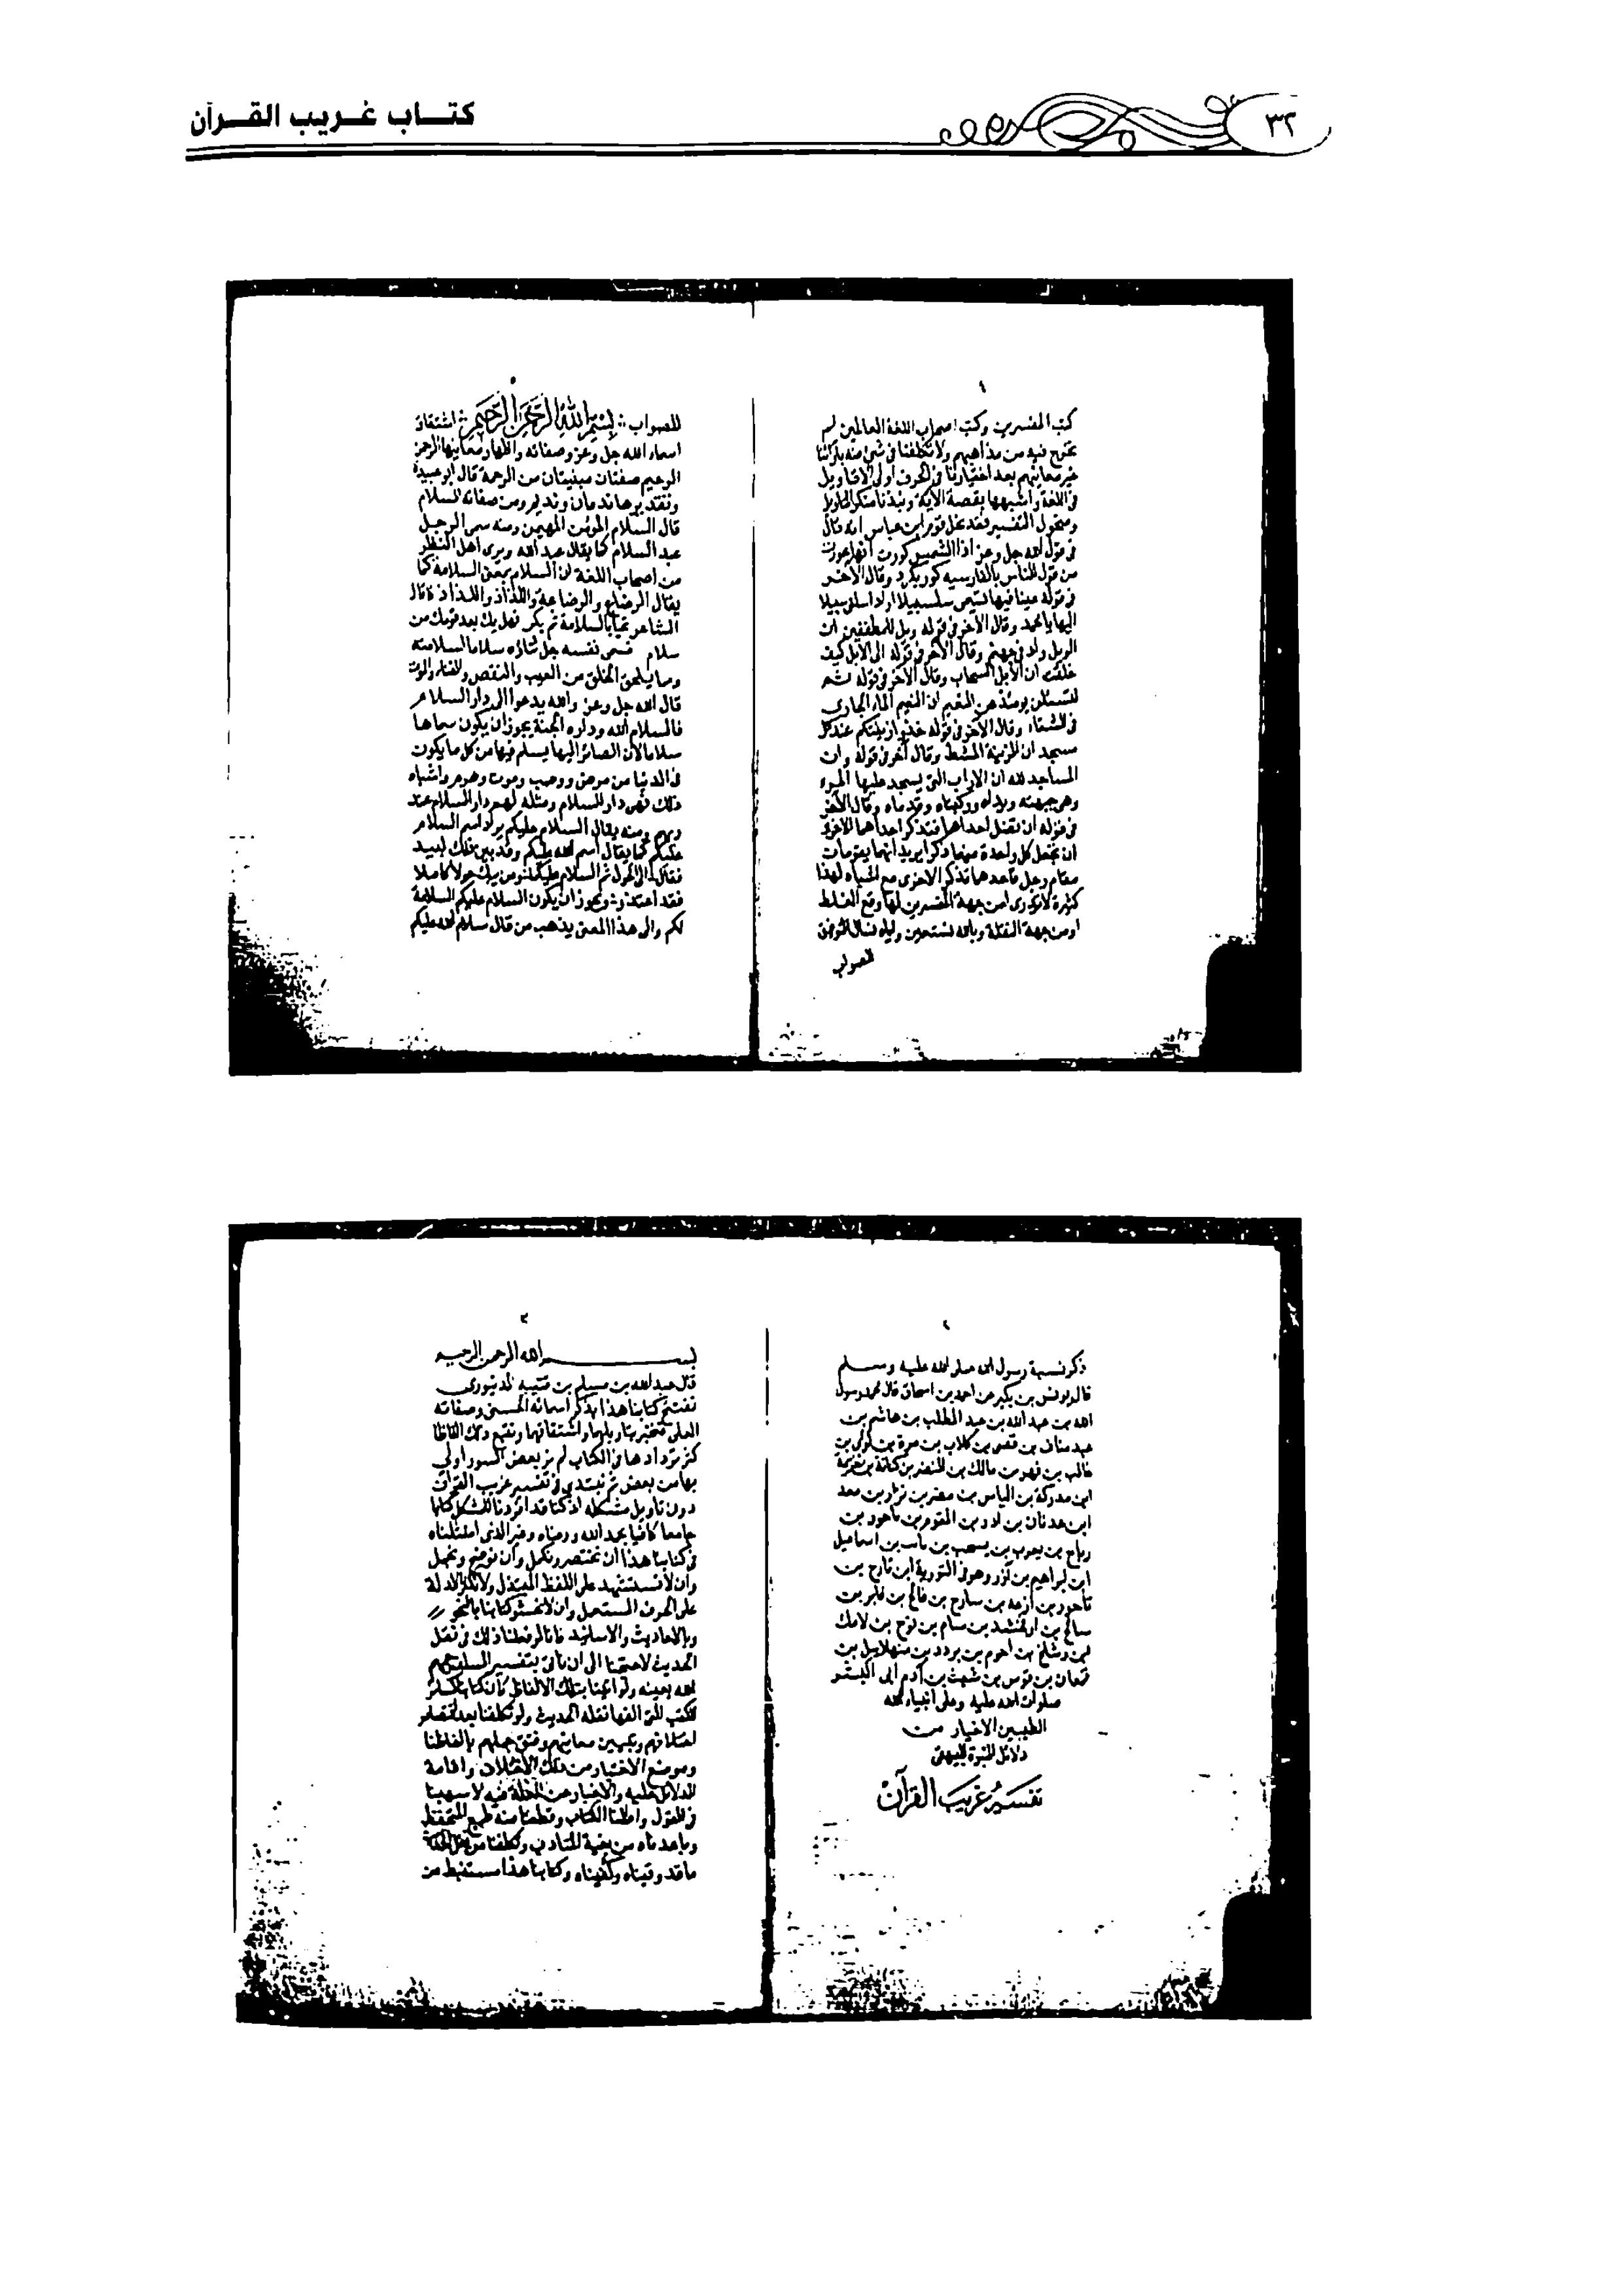 ٣٢
كتاب غريب القرآن
كتب المفسرين وكتب اصحاب اللغة العالمين لم
نخرج فيه من مذاهبهم ولا تكلفنا في شئ منه بآرائنا
غير معانيهم بعد اختيارنا في الحرف اولى الاقاويل
في اللغة واشبهها بقصة الآية ونبذنا منكر التاويل
ومنحول التفسير فقد نحل قوم ابن عباس انه قال
في قول الله جل وعز اذا الشمس كورت انها غورت
من قول الناس بالفارسيه كور بكرد وقال الآخر
في قوله عينا فيها تسمى سلسبيلا اراد سلنى سبيلا
اليها يا محمد وقال الآخر في قوله ويل للمطففين ان
الويل واد في جهنم وقال الآخر في قوله الى الابل كيف
خلقت ان الابل السحاب وقال الآخر في قوله ثم
لتسئلن يومئذ عن النعيم ان النعيم الماء الجارى
في الشتاء وقال الآخر في قوله خذوا زينتكم عند كل
مسجد ان الزينة المشط وقال آخر في قوله وان
المساجد لله ان الآراب التى يسجد عليها المرء
وهي جبهته ويداه وركبتاه وقدماه وقال الآخر
في قوله ان تضل احداهما فتذكر احداهما الاخرى
ان تجعل كل واحدة منهما ذكرا يريد انهما يقومان
مقام رجل فاحدهما تذكر الاخرى مع اشباه لهذا
كثيرة لا ندرى امن جهة المفسرين لها وقع الغلط
او من جهة النقلة وبالله نستعين واياه نسأل التوفيق
للصواب
للصواب بسم الله الرحمن الرحيم اشتقاق
اسماء الله جل وعز وصفاته واظهار معانيها الرحمن
الرحيم صفتان مبنيتان من الرحمة قال ابو عبيدة
وتقديرهما ندمان ونديم ومن صفاته السلام
قال السلام المؤمن المهيمن ومنه سمى الرجل
عبد السلام كما يقال عبد الله ويرى اهل النظر
من اصحاب اللغة ان السلام بمعنى السلامة كما
يقال الرضاع والرضاعة واللذاذ واللذاذة قال
الشاعر تحيا بالسلامة ام بكر فهل لك بعد قومك من
سلام فسمى نفسه جل ثناؤه سلاما لسلامته
ومما يلحق الخلق من العيب والنقص والفناء والموت
قال الله جل وعز والله يدعوا الى دار السلام
فالسلام الله وداره الجنة يجوز ان يكون سماها
سلاما لان الصائر اليها يسلم فيها من كل ما يكون
في الدنيا من مرض ووصب وموت وهرم واشباه
ذلك فهى دار السلام ومثله لهم دار السلام عند
ربهم ومنه يقال السلام عليكم يراد اسم السلام
عليكم كما يقال اسم الله عليكم وقد بين ذلك لبيد
فقال الى الحول ثم السلام عليكما ومن يبك حولا كاملا
فقد اعتذر ويجوز ان يكون السلام عليكم السلامة
لكم والى هذا المعنى يذهب من قال سلام الله عليكم
ذكر نسبة رسول الله صلى الله عليه وسلم
قال يونس بن بكير عن احمد بن اسحاق قال محمد رسول
الله بن عبد الله بن عبد المطلب بن هاشم بن
عبد مناف بن قصى بن كلاب بن مرة بن لوئي بن
غالب بن فهر بن مالك بن النضر بن كنانة بن خزيمة
ابن مدركة بن الياس بن مضر بن نزار بن معد
ابن عدنان بن ادد بن المقوم بن ناحور بن
رباح بن يعرب بن يشجب بن نابت بن اسماعيل
ابن ابراهيم بن آزر وهو في التورية ابن تارح بن
ناحور بن ارعه بن سارح بن فالح بن عابر بن
سالح بن ارفخشد بن سام بن نوح بن لامك
شيث بن آدم ابى البشر
صلوات الله عليه وعلى انبياء الله
الطيبين الاخيار من
دلائل النبوة للبيهقى
تفسير غريب القرآن
بسم الله الرحمن الرحيم
قال عبد الله بن مسلم بن قتيبه الدينورى
نفتتح كتابنا هذا بذكر اسمائه الحسنى وصفاته
العلى فنخبر بتاويلها واشتقاقها ونتبع ذلك الفاظا
كثر تردادها في الكتاب لم نر بعض السور اولى
بها من بعض ثم نبتدى في تفسير غريب القرآن
دون تاويل مشكله اذ كنا قد افردنا للمشكل كتابا
جامعا كافيا بحمد الله وغرضنا الذى امتثلناه
في كتابنا هذا ان نختصر ونكمل وان نوضح ونجمل
وان لا نستشهد على اللفظ المبتذل ولا نكثر الدلالة
على الحرف المستعمل وان لا نحشو كتابنا بالنحو
وبالاحاديث والاسانيد فانا لو فعلنا ذلك في نقل
الحديث لاحتجنا الى ان ناتى بتفسير السلف رحمهم
الله بعينه ولو اتينا بتلك الالفاظ كان كتابنا كسائر
الكتب التى الفها نقلة الحديث ولو تكلفنا بعد اقتصاص
اختلافهم وتبيين معانيهم وفتق جملهم بالفاظنا
وموضع الاختيار من ذلك الاختلاف واقامة
الدلائل عليه والاخبار عن العلة فيه لاسهبنا
في القول واطلنا الكتاب وقطعنا منه طمع المتحفظ
وباعدناه من بغية المتادب وتكلفنا من نقل الحديث
ما قد وقيناه وكفيناه وكتابنا هذا مستنبط من